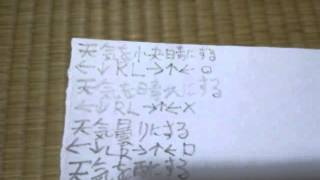 天気を小夫晴にする
←↓RL→↑←□
天気を日本晴にする
←↓RL→↑←X
天気曇りにする
←↓LR→↑←□
天気を雨にする